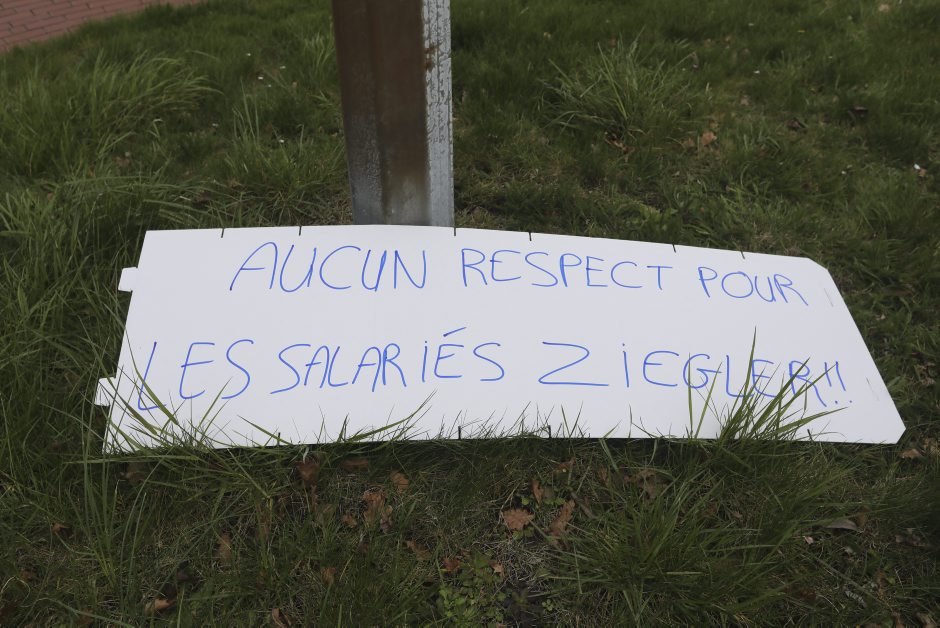 AUCUN RESPECT POUR
LES SALARIÉS ZIEGLER!!